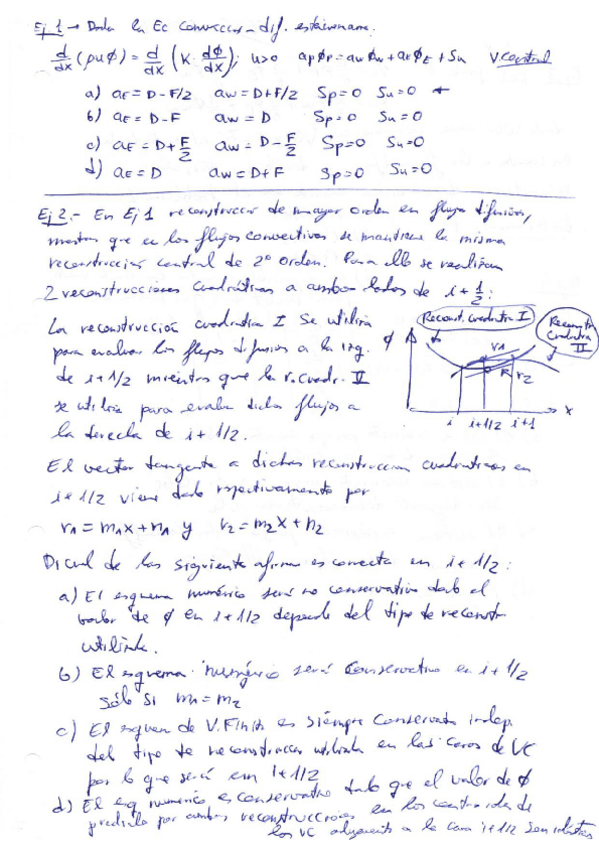 Ej 1 → Dada la Ec convección-dif. estacionaria.
d/dx (ρuϕ) = d/dx (K· dϕ/dx); u>0 apϕp = awϕw + aEϕE + Su V central
a) aE = D-F/2 aw = D+F/2 Sp=0 Su=0 ←
b) aE = D-F aw = D Sp=0 Su=0
c) aE = D+F/2 aw = D-F/2 Sp=0 Su=0
d) aE = D aw = D+F Sp=0 Su=0
Ej 2.- En Ej 1 reconstrucción de mayor orden en flujos difusivos,
mientras que en los flujos convectivos se mantiene la misma
reconstrucción central de 2º orden. Para ello se realizan
2 reconstrucciones cuadráticas a ambos lados de i+1/2:
La reconstrucción cuadrática I se utiliza
para evaluar los flujos difusivos a la izq.
de i+1/2 mientras que la r. cuadr. II
se utiliza para evaluar dichos flujos a
la derecha de i+1/2.
Reconst. cuadrática I
Reconst. cuadrática II
ϕ r1 R r2
i i+1/2 i+1 x
El vector tangente a dichas reconstrucciones cuadráticas en
i+1/2 viene dado respectivamente por
r1 = m1x+n1 y r2 = m2x+n2
D/cual de las siguientes afirmac es correcta en i+1/2:
a) El esquema numérico será no conservativo dado el
valor de ϕ en i+1/2 depende del tipo de reconstr
utilizada.
b) El esquema numérico será conservativo en i+1/2
sólo si m1 = m2
c) El esquema de V. Finitos es siempre conservativo indep
del tipo de reconstrucción utilizada en las caras de VC
por lo que será en i+1/2
d) El esq numérico es conservativo dado que el valor de ϕ
predicho por ambas reconstrucciones en los centroides de
los VC adyacentes a la cara i+1/2 son idénticos